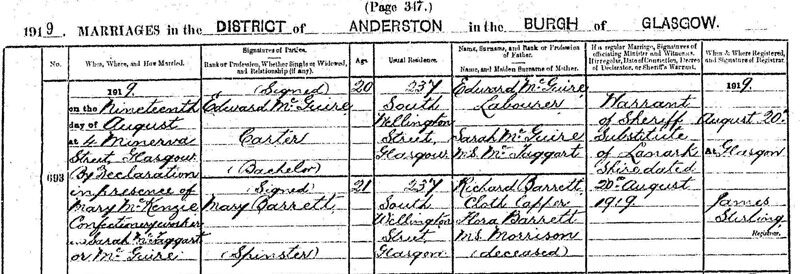 (Page 347.)
1919. MARRIAGES in the DISTRICT of ANDERSTON in the BURGH of GLASGOW.
No.
When, Where, and How Married.
Signatures of Parties.
Rank or Profession, Whether Single or Widowed, and Relationship (if any).
Age.
Usual Residence.
Name, Surname, and Rank or Profession of Father.
Name, and Maiden Surname of Mother.
If a regular Marriage, Signatures of officiating Minister and Witnesses.
If irregular, Date of Conviction, Decree of Declarator, or Sheriff's Warrant.
When & Where Registered, and Signature of Registrar.
693
1919.
on the Nineteenth
day of August
at 4 Minerva
Street Glasgow
(By Declaration
in presence of
Mary McKenzie
Confectionery worker
and Sarah McTaggart
or McGuire
(Signed)
Edward McGuire
Carter
(Bachelor)
(Signed)
Mary Barrett
(Spinster)
20
21
237
South
Wellington
Street,
Glasgow
237
South
Wellington
Street
Glasgow
Edward McGuire
Labourer
Sarah McGuire
M.S. McTaggart
Richard Barrett
Cloth Lapper
Flora Barrett
M.S. Morrison
(deceased)
Warrant
of Sheriff
Substitute
of Lanark
Shire dated
20th August
1919
1919.
August 20th
At Glasgow
James
Stirling
Registrar.